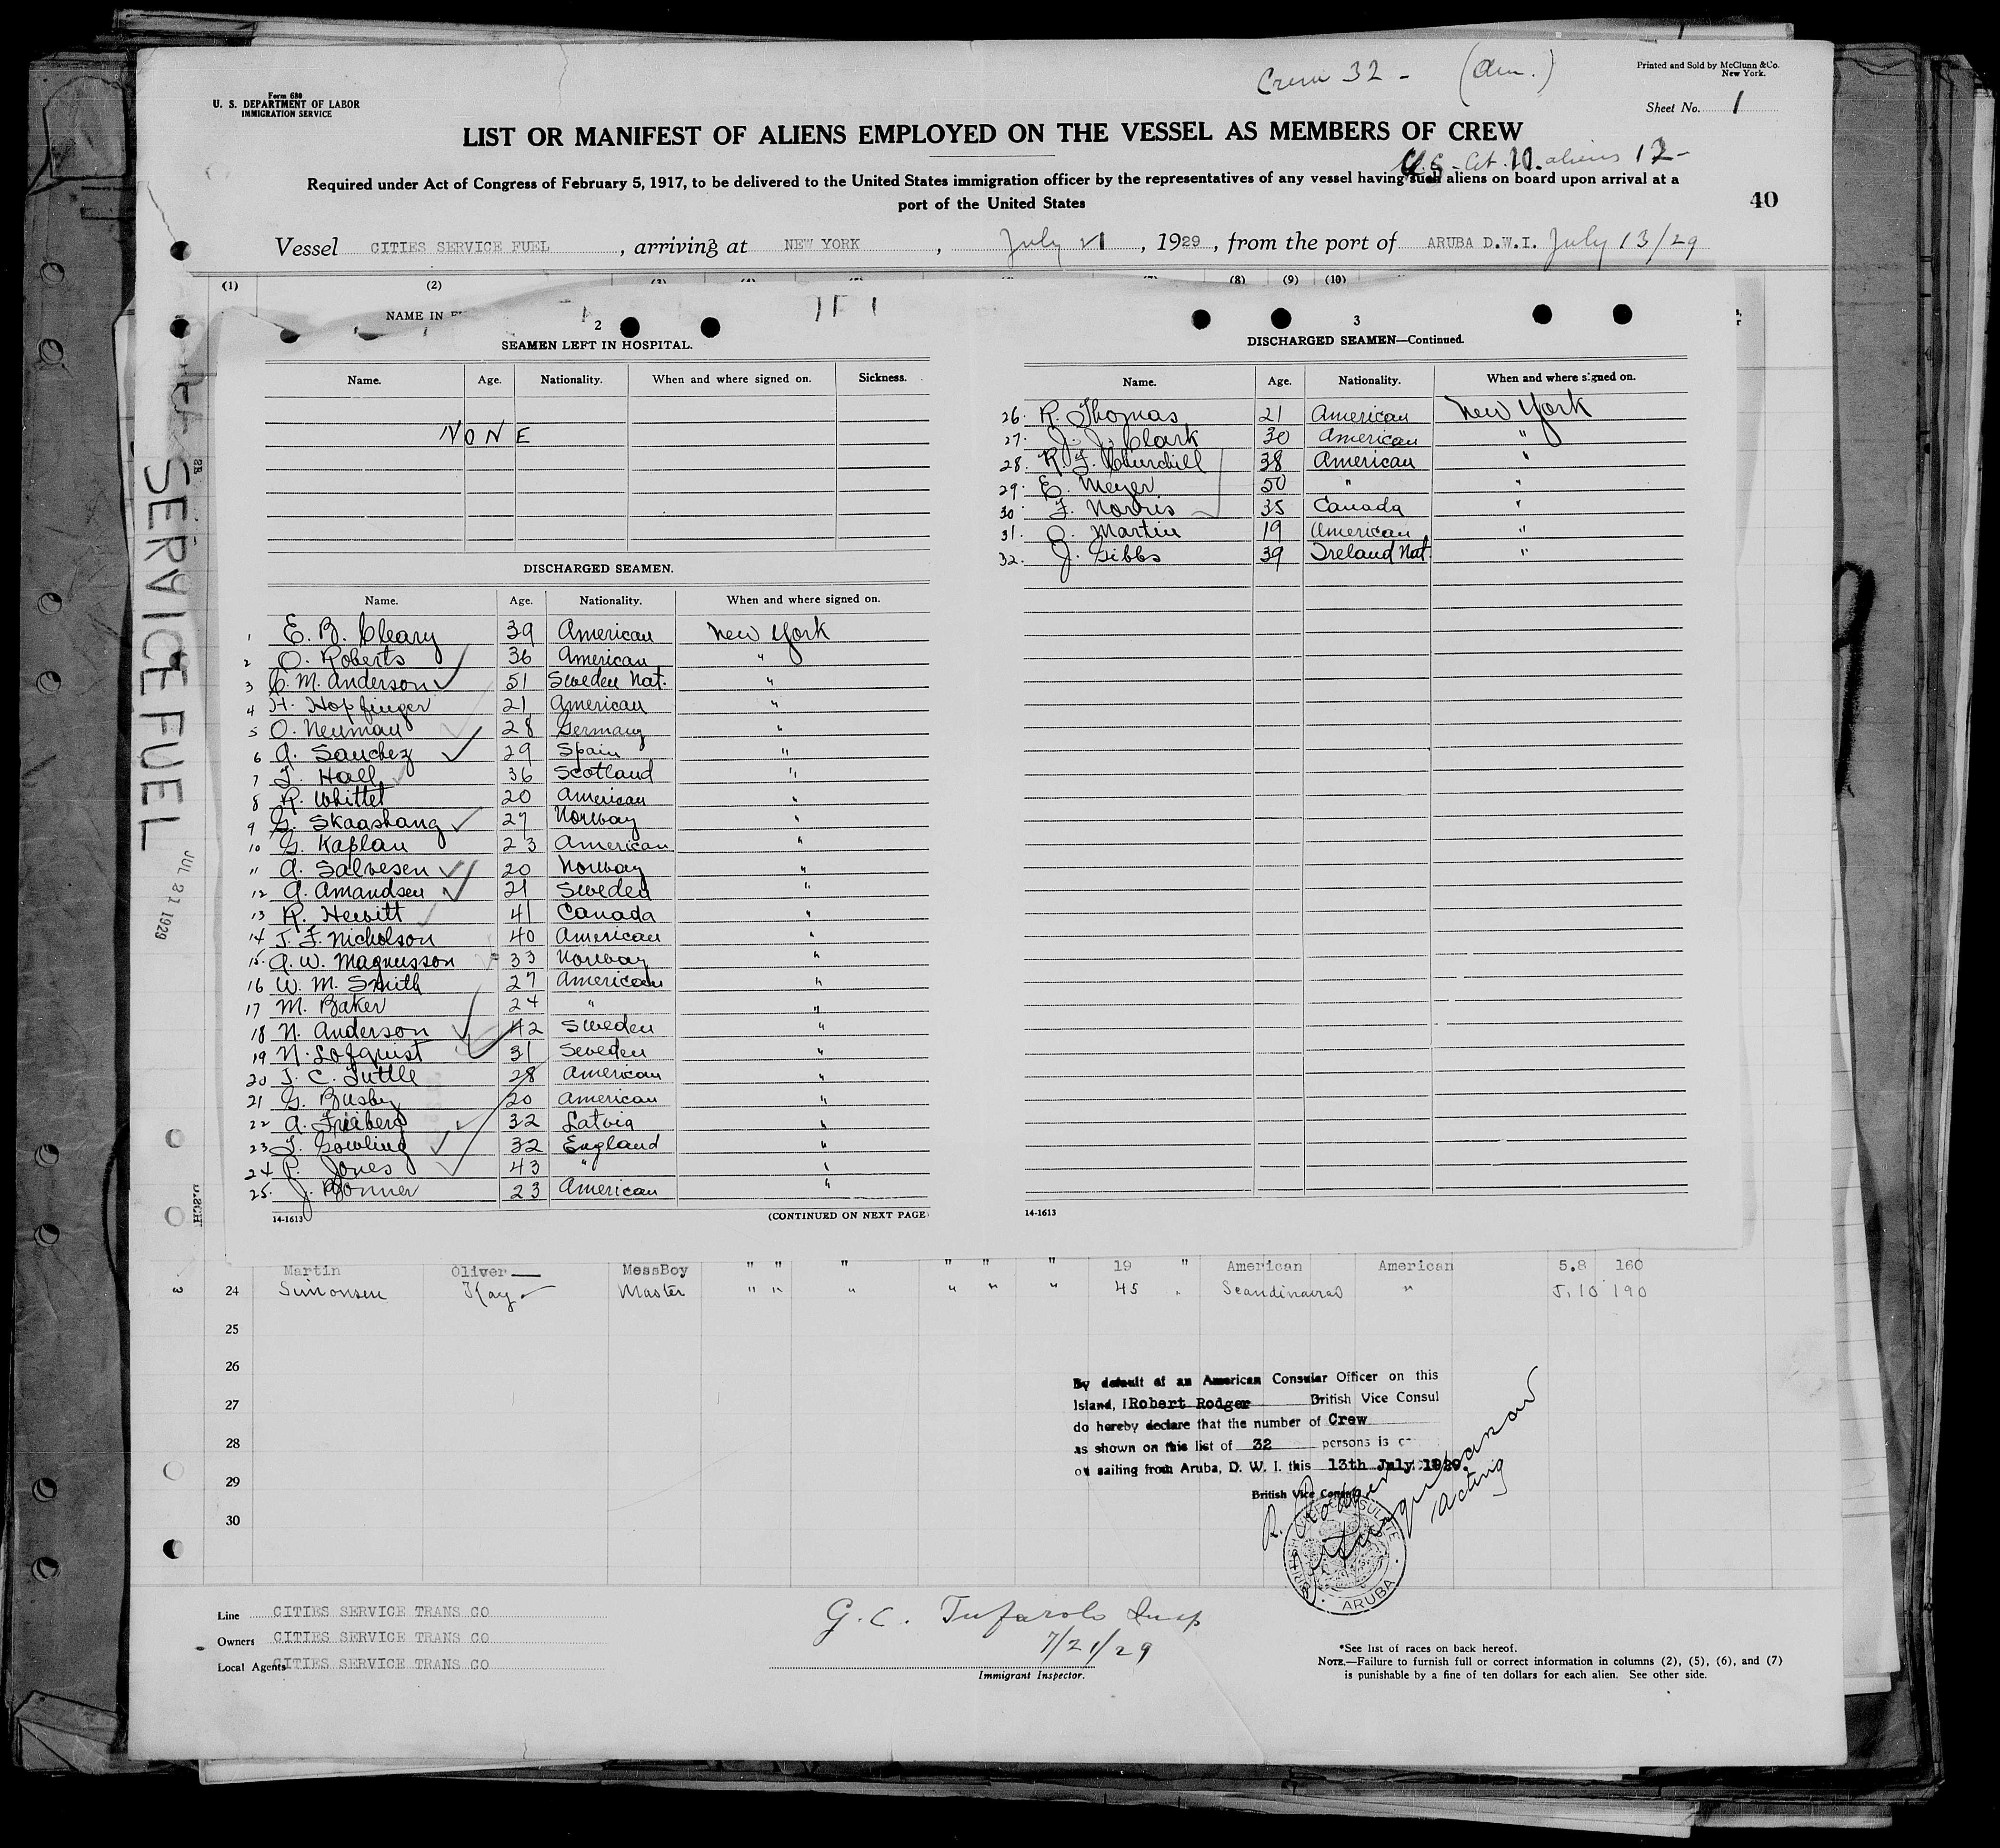 Crew 32 - (Am.)
Printed and Sold by McClunn & Co.
New York.
Form 680
U. S. DEPARTMENT OF LABOR
IMMIGRATION SERVICE
Sheet No. 1
LIST OR MANIFEST OF ALIENS EMPLOYED ON THE VESSEL AS MEMBERS OF CREW
U.S. Cit. aliens 12 -
Required under Act of Congress of February 5, 1917, to be delivered to the United States immigration officer by the representatives of any vessel having such aliens on board upon arrival at a
port of the United States
40
Vessel CITIES SERVICE FUEL , arriving at NEW YORK , July 21 , 1929 , from the port of ARUBA D.W.I. July 13/29
(1) (2) (8) (9) (10)
NAME IN
2
SEAMEN LEFT IN HOSPITAL.
Name. Age. Nationality. When and where signed on. Sickness.
NONE
DISCHARGED SEAMEN.
Name. Age. Nationality. When and where signed on.
1 E. B. Cleary 39 American New York
2 O. Roberts 36 American "
3 C. M. Anderson 51 Sweden Nat. "
4 H. Hopfinger 21 American "
5 O. Neuman 28 Germany "
6 A. Sanchez 29 Spain "
7 T. Hall 36 Scotland "
8 R. Whittet 20 American "
9 G. Skaashang 27 Norway "
10 G. Kaplan 23 American "
11 A. Salvesen 20 Norway "
12 A. Amandsen 21 Sweden "
13 R. Hewitt 41 Canada "
14 J. F. Nicholson 40 American "
15. A. W. Magnusson 33 Norway "
16 W. M. Smith 27 American "
17 M. Baker 24 " "
18 N. Anderson 42 Sweden "
19 N. Lofquist 31 Sweden "
20 J. C. Tuttle 28 American "
21 G. Busby 20 American "
22 A. Frieberg 32 Latvia "
23 T. Gowling 32 England "
24 P. Jones 43 " "
25. J. Bonner 23 American "
14-1613
(CONTINUED ON NEXT PAGE)
3
DISCHARGED SEAMEN—Continued.
Name. Age. Nationality. When and where signed on.
26. R. Thomas 21 American New York
27. J. J. Clark 30 American "
28. R. F. Churchill 38 American "
29. E. Meyer 50 " "
30. F. Norris 35 Canada "
31. O. Martin 19 American "
32. J. Gibbs 39 Ireland Nat. "
14-1613
SERVICE FUEL
JUL 21 1929
DISCH
3
Martin Oliver MessBoy " " " " " " 19 " American American 5.8 160
24 Simonsen Kay Master " " " " " " 45 " Scandinavian " 5.10 190
25
26
27
28
29
30
By default of an American Consular Officer on this
Island, I Robert Rodger British Vice Consul
do hereby declare that the number of Crew
as shown on this list of 32 persons is
on sailing from Aruba, D. W. I. this 13th July. 1929.
British Vice Consul
Acting
BRITISH VICE CONSULATE
ARUBA
Line CITIES SERVICE TRANS CO
Owners CITIES SERVICE TRANS CO
Local Agents CITIES SERVICE TRANS CO
G. C. Tufarolo Insp
7/21/29
Immigrant Inspector.
*See list of races on back hereof.
NOTE.—Failure to furnish full or correct information in columns (2), (5), (6), and (7)
is punishable by a fine of ten dollars for each alien. See other side.